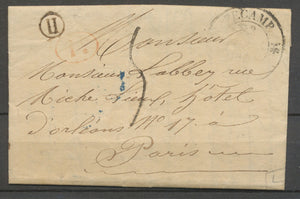 H
FECAMP
Monsieur
Monsieur Labbey rue
Richelieu, hôtel
d'orléans No 17. à
Paris